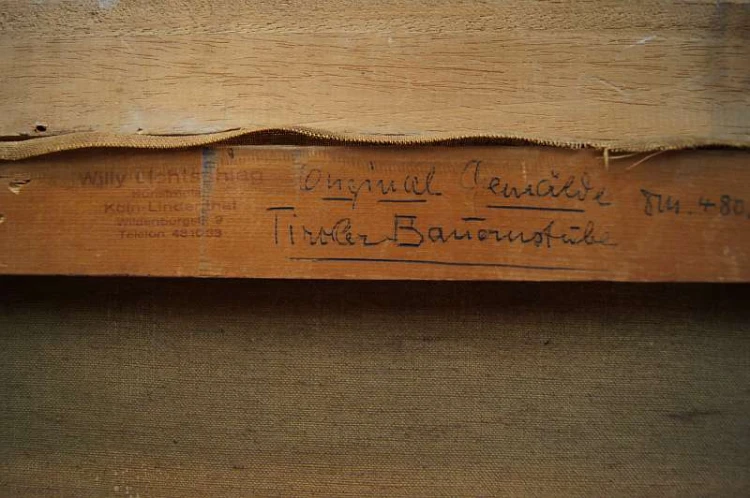 Willy Lichtschlag
Köln-Lindenthal
Telefon 431033
Original Gemälde
Tiroler Bauernstube
DM. 480